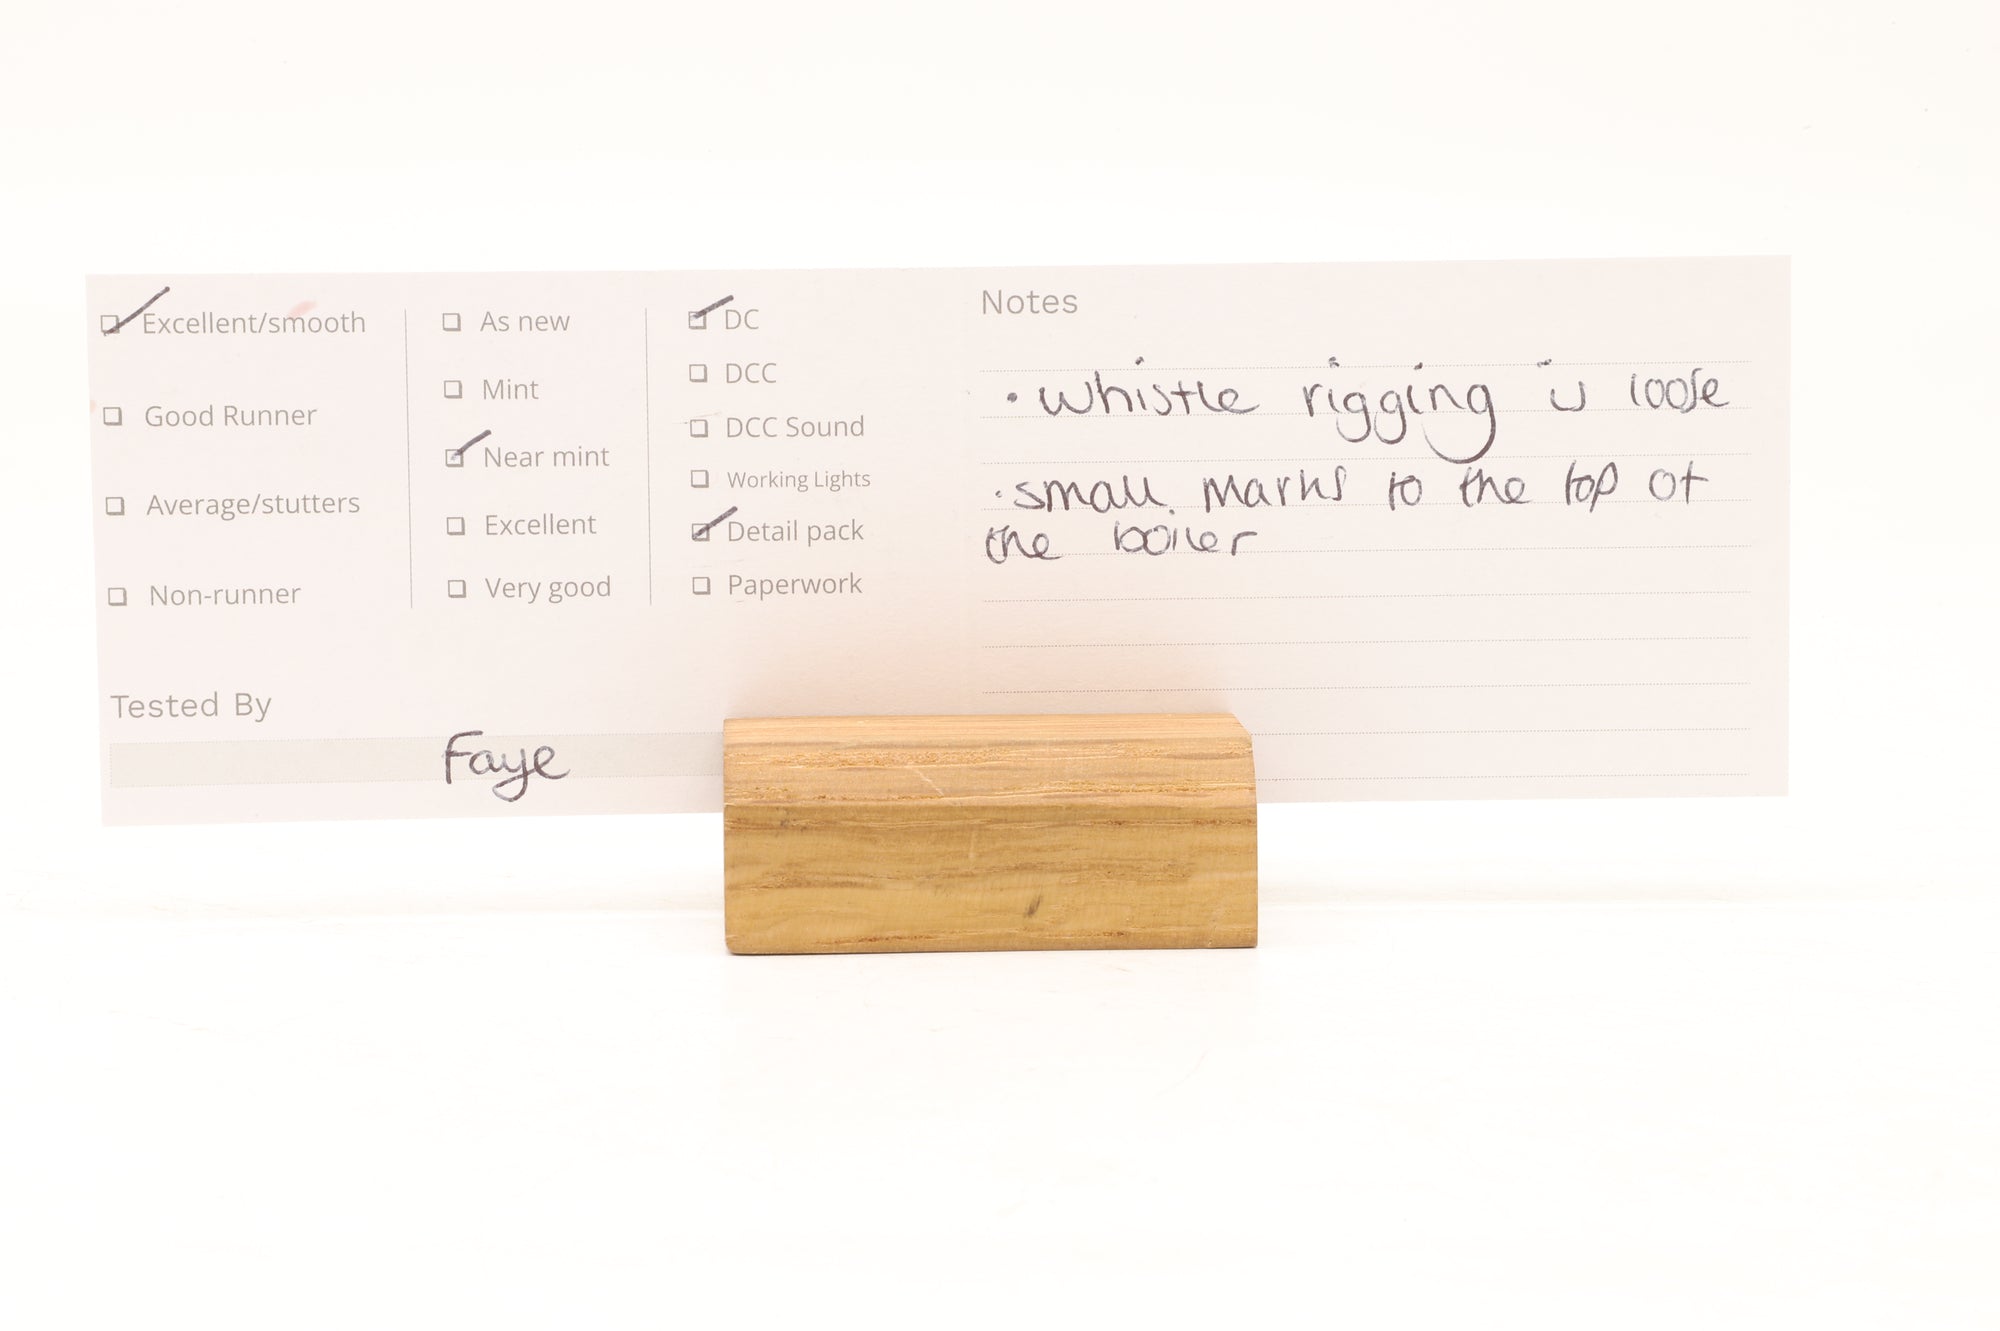 Excellent/smooth
Good Runner
Average/stutters
Non-runner
As new
Mint
Near mint
Excellent
Very good
DC
DCC
DCC Sound
Working Lights
Detail pack
Paperwork
Tested By
Faye
Notes
• whistle rigging is loose
• small marks to the top of
the boiler